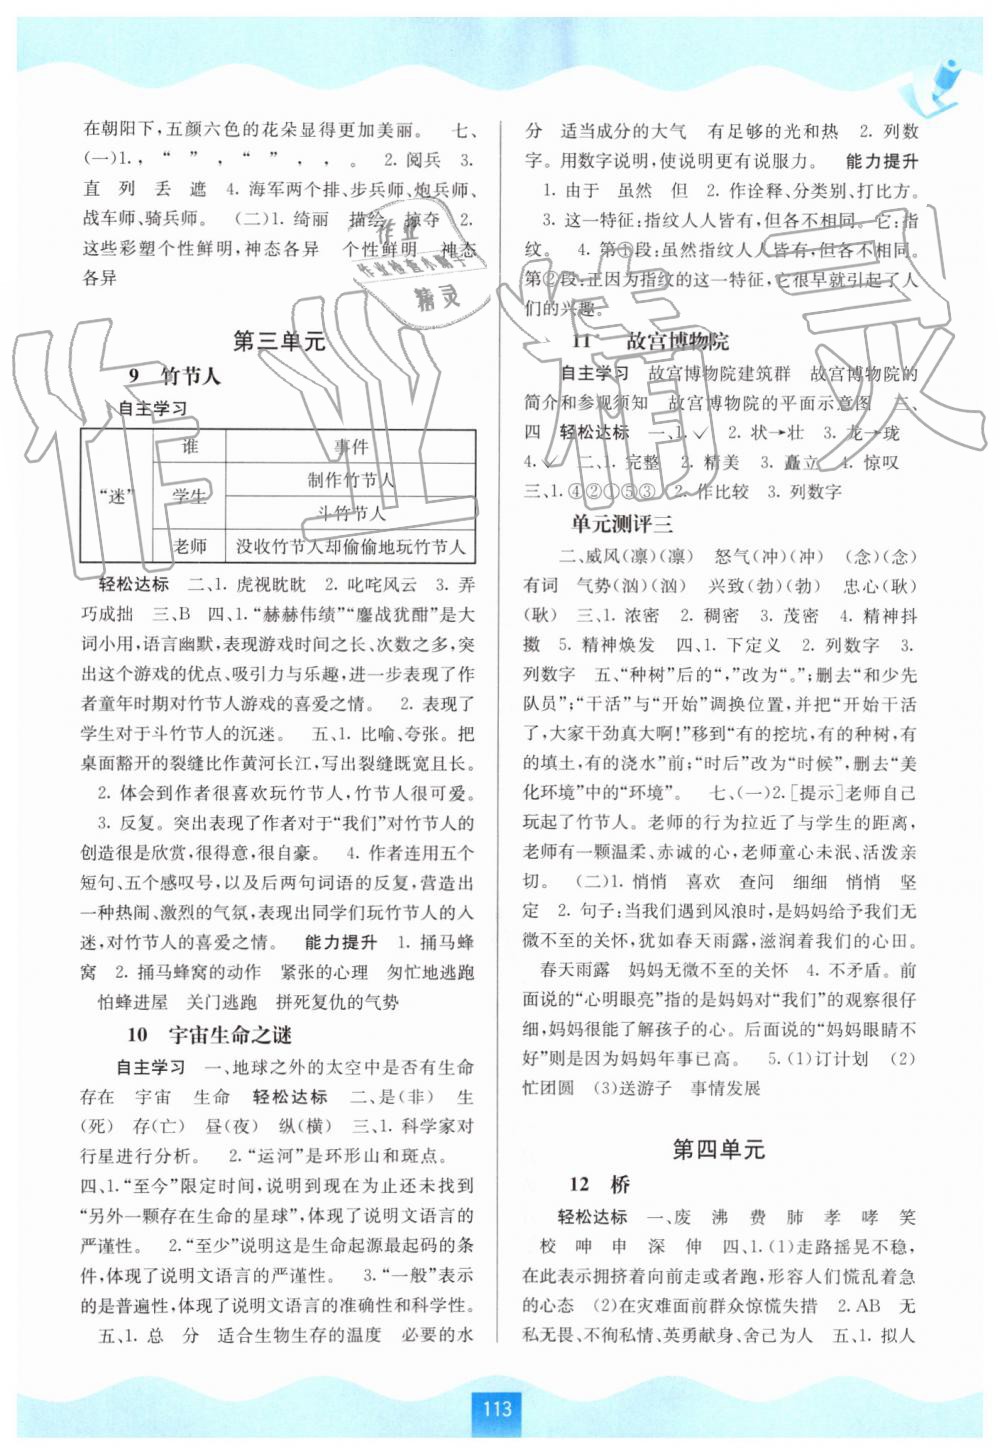 在朝阳下,五颜六色的花朵显得更加美丽。 七、
(一)1. , “ ” , “ ” , , 。 2. 阅兵 3.
直 列 丢 遮 4. 海军两个排、步兵师、炮兵师、
战车师、骑兵师。 (二)1. 绮丽 描绘 掠夺 2.
这些彩塑个性鲜明,神态各异 个性鲜明 神态
各异
第三单元
9 竹节人
自主学习
谁 事件
“迷” 学生 制作竹节人
斗竹节人
老师 没收竹节人却偷偷地玩竹节人
轻松达标 二、1. 虎视眈眈 2. 叱咤风云 3. 弄
巧成拙 三、B 四、1.“赫赫伟绩”“鏖战犹酣”是大
词小用,语言幽默,表现游戏时间之长、次数之多,突
出这个游戏的优点、吸引力与乐趣,进一步表现了作
者童年时期对竹节人游戏的喜爱之情。 2. 表现了
学生对于斗竹节人的沉迷。 五、1. 比喻、夸张。把
桌面豁开的裂缝比作黄河长江,写出裂缝既宽又长。
2. 体会到作者很喜欢玩竹节人,竹节人很可爱。
3. 反复。突出表现了作者对于“我们”对竹节人的
创造很是欣赏,很得意,很自豪。 4. 作者连用五个
短句、五个感叹号,以及后两句词语的反复,营造出
一种热闹、激烈的气氛,表现出同学们玩竹节人的入
迷,对竹节人的喜爱之情。 能力提升 1. 捅马蜂
窝 2. 捅马蜂窝的动作 紧张的心理 匆忙地逃跑
怕蜂进屋 关门逃跑 拼死复仇的气势
10 宇宙生命之谜
自主学习 一、地球之外的太空中是否有生命
存在 宇宙 生命 轻松达标 二、是(非) 生
(死) 存(亡) 昼(夜) 纵(横) 三、1. 科学家对
行星进行分析。 2.“运河”是环形山和斑点。
四、1.“至今”限定时间,说明到现在为止还未找到
“另外一颗存在生命的星球”,体现了说明文语言的
严谨性。 2.“至少”说明这是生命起源最起码的条
件,体现了说明文语言的严谨性。 3.“一般”表示
的是普遍性,体现了说明文语言的准确性和科学性。
五、1. 总 分 适合生物生存的温度 必要的水
分 适当成分的大气 有足够的光和热 2. 列数
字。用数字说明,使说明更有说服力。 能力提升
1. 由于 虽然 但 2. 作诠释、分类别、打比方。
3. 这一特征:指纹人人皆有,但各不相同。它:指
纹。 4. 第①段:虽然指纹人人皆有,但各不相同。
第②段:正因为指纹的这一特征,它很早就引起了人
们的兴趣。
11 故宫博物院
自主学习 故宫博物院建筑群 故宫博物院的
简介和参观须知 故宫博物院的平面示意图 三、
四 轻松达标 一、1. ✓ 2. 状→壮 3. 龙→珑
4. ✓ 二、1. 完整 2. 精美 3. 矗立 4. 惊叹
三、1. ④②①⑤③ 2. 作比较 3. 列数字
单元测评三
二、威风(凛)(凛) 怒气(冲)(冲) (念)(念)
有词 气势(汹)(汹) 兴致(勃)(勃) 忠心(耿)
(耿) 三、1. 浓密 2. 稠密 3. 茂密 4. 精神抖
擞 5. 精神焕发 四、1. 下定义 2. 列数字 3.
列数字 五、“种树”后的“,”改为“。”;删去“和少先
队员”;“干活”与“开始”调换位置,并把“开始干活
了,大家干劲真大啊!”移到“有的挖坑,有的种树,有
的填土,有的浇水”前;“时后”改为“时候”,删去“美
化环境”中的“环境”。 七、(一)2.[提示]老师自己
玩起了竹节人。老师的行为拉近了与学生的距离,
老师有一颗温柔、赤诚的心,老师童心未泯、活泼亲
切。 (二)1. 悄悄 喜欢 查问 细细 悄悄 坚
定 2. 句子:当我们遇到风浪时,是妈妈给予我们无
微不至的关怀,犹如春天雨露,滋润着我们的心田。
春天雨露 妈妈无微不至的关怀 4. 不矛盾。前
面说的“心明眼亮”指的是妈妈对“我们”的观察很仔
细,妈妈很能了解孩子的心。后面说的“妈妈眼睛不
好”则是因为妈妈年事已高。 5. (1)订计划 (2)
忙团圆 (3)送游子 事情发展
第四单元
12 桥
轻松达标 一、废 沸 费 肺 孝 哮 笑
校 呻 申 深 伸 四、1. (1)走路摇晃不稳,
在此表示拥挤着向前走或者跑,形容人们慌乱着急
的心态 (2)在灾难面前群众惊慌失措 2. AB 无
私无畏、不徇私情、英勇献身、舍己为人 五、1. 拟人
113
作业
作业检查小助手
精灵
作业精灵